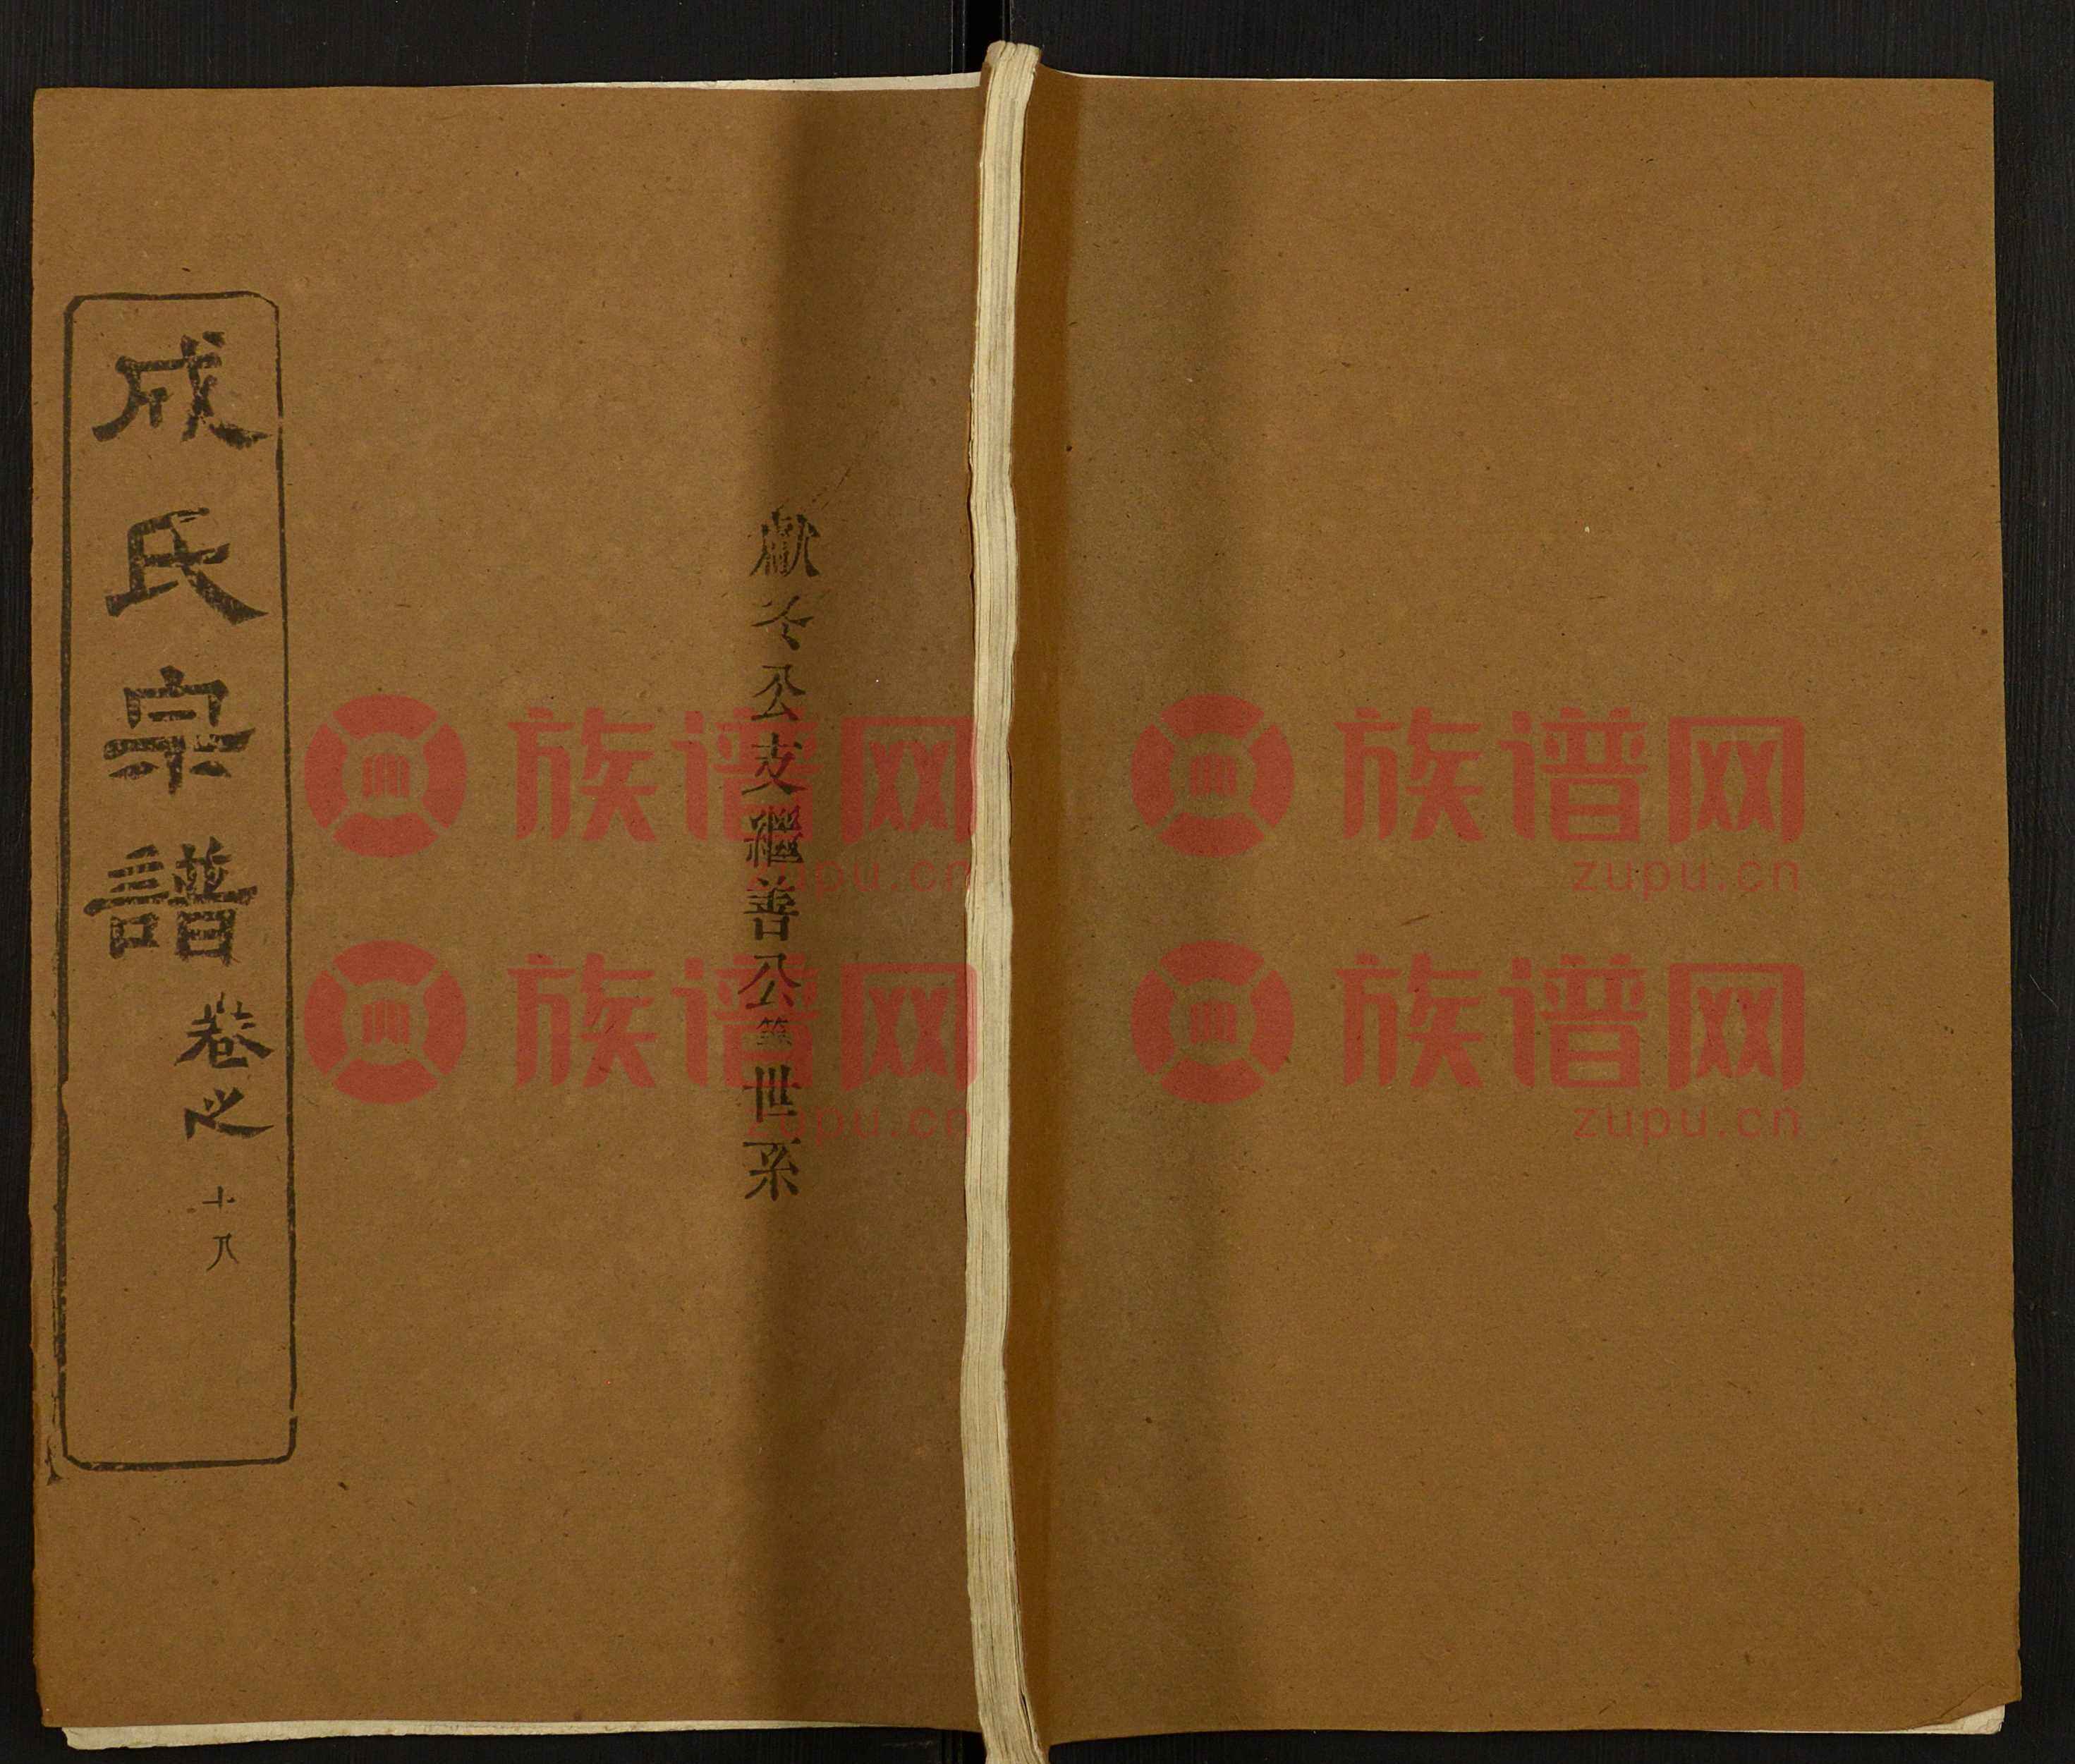 公支繼善公世系
成氏宗譜 卷之 十八
族谱网
zupu.cn
族谱网
zupu.cn
族谱网
zupu.cn
族谱网
zupu.cn